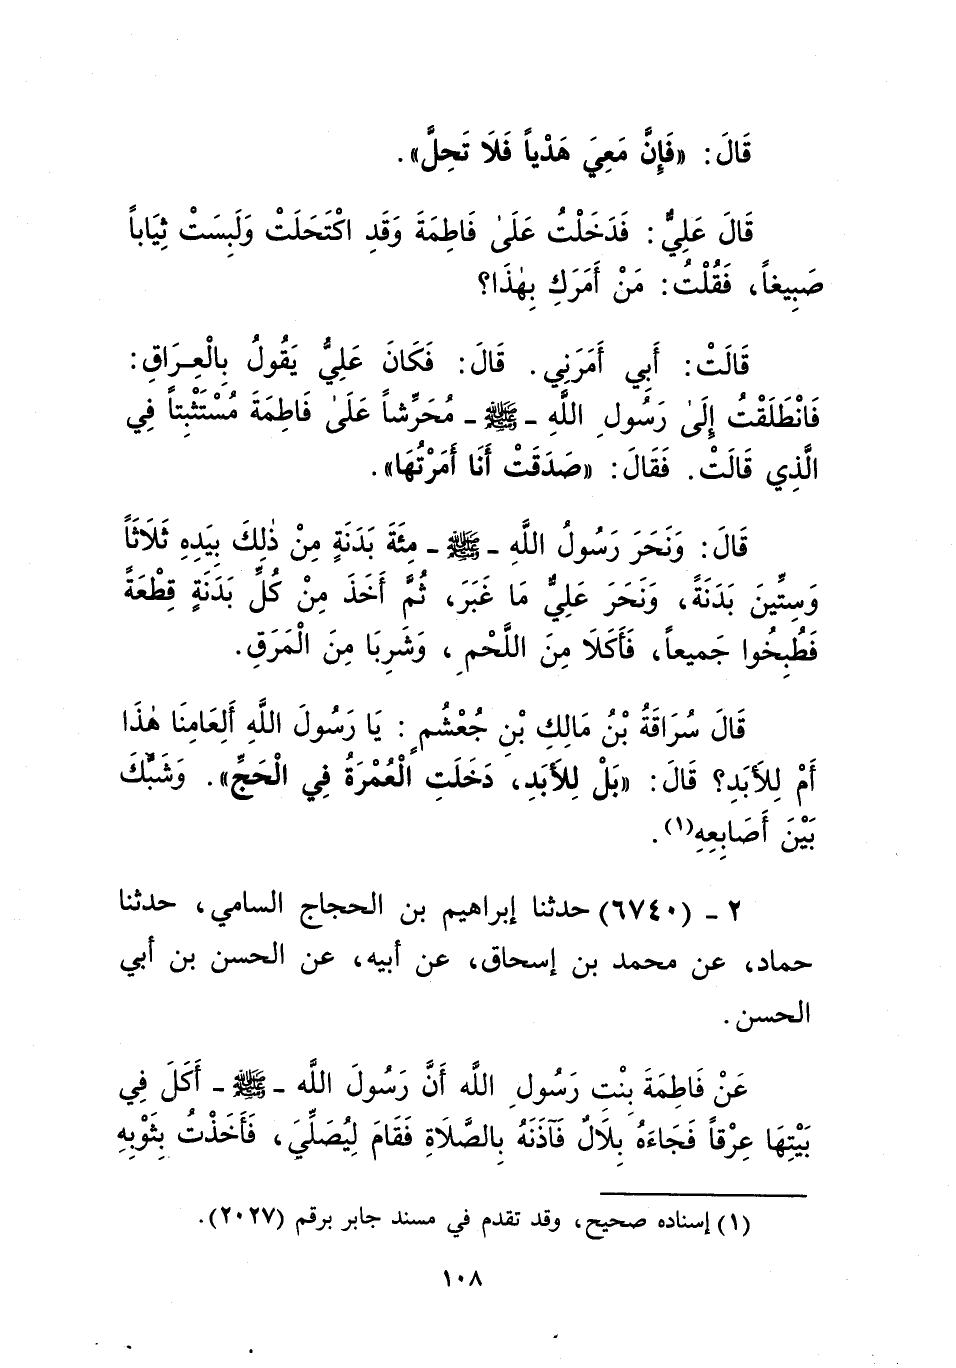 قَالَ: «فَإِنَّ مَعِيَ هَدْياً فَلَا تَحِلَّ».
قَالَ عَلِيٌّ: فَدَخَلْتُ عَلَىٰ فَاطِمَةَ وَقَدِ اكْتَحَلَتْ وَلَبِسَتْ ثِيَاباً
صَبِيغاً، فَقُلْتُ: مَنْ أَمَرَكِ بِهٰذَا؟
قَالَتْ: أَبِي أَمَرَنِي. قَالَ: فَكَانَ عَلِيٌّ يَقُولُ بِالْعِرَاقِ:
فَانْطَلَقْتُ إِلَىٰ رَسُولِ اللَّهِ ـ ﷺ ـ مُحَرِّشاً عَلَىٰ فَاطِمَةَ مُسْتَثْبِتاً فِي
الَّذِي قَالَتْ. فَقَالَ: «صَدَقَتْ أَنَا أَمَرْتُهَا».
قَالَ: وَنَحَرَ رَسُولُ اللَّهِ ـ ﷺ ـ مِئَةَ بَدَنَةٍ مِنْ ذٰلِكَ بِيَدِهِ ثَلَاثَاً
وَسِتِّينَ بَدَنَةً، وَنَحَرَ عَلِيٌّ مَا غَبَرَ، ثُمَّ أَخَذَ مِنْ كُلِّ بَدَنَةٍ قِطْعَةً
فَطُبِخُوا جَمِيعاً، فَأَكَلَا مِنَ اللَّحْمِ، وَشَرِبَا مِنَ الْمَرَقِ.
قَالَ سُرَاقَةُ بْنُ مَالِكِ بْنِ جُعْشُمٍ: يَا رَسُولَ اللَّهِ أَلِعَامِنَا هٰذَا
أَمْ لِلأَبَدِ؟ قَالَ: «بَلْ لِلأَبَدِ، دَخَلَتِ الْعُمْرَةُ فِي الْحَجِّ». وَشَبَّكَ
بَيْنَ أَصَابِعِهِ(١).
٢ ـ (٦٧٤٠) حدثنا إبراهيم بن الحجاج السامي، حدثنا
حماد، عن محمد بن إسحاق، عن أبيه، عن الحسن بن أبي
الحسن.
عَنْ فَاطِمَةَ بِنْتِ رَسُولِ اللَّه أَنَّ رَسُولَ اللَّه ـ ﷺ ـ أَكَلَ فِي
بَيْتِهَا عِرْقاً فَجَاءَهُ بِلَالٌ فَآذَنَهُ بِالصَّلَاةِ فَقَامَ لِيُصَلِّيَ، فَأَخَذْتُ بِثَوْبِهِ
(١) إسناده صحيح، وقد تقدم في مسند جابر برقم (٢٠٢٧).
١٠٨